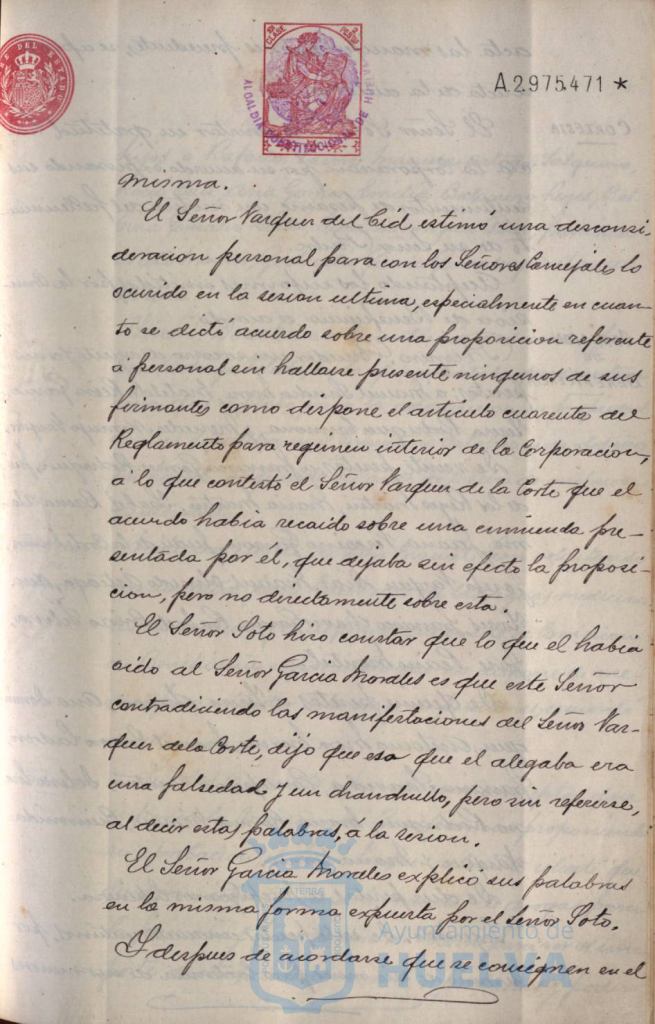 A2975471 *
ALCALDIA CONSTITUCIONAL DE HUELVA
misma.
El Señor Vazquez del Cid estimó una desconsi-
deracion personal para con los Señores Concejales lo
ocurido en la sesion ultima, especialmente en cuan-
to se dictó acuerdo sobre una proposicion referente
á personal sin hallarse presente ningunos de sus
firmantes como dispone el articulo cuarenta del
Reglamento para regimen interior de la Corporacion,
á lo que contestó el Señor Vazquez de la Corte que el
acuerdo habia recaido sobre una enmienda pre-
sentada por él, que dejaba sin efecto la proposi-
cion, pero no directamente sobre esta.
El Señor Soto hizo constar que lo que el habia
oido al Señor Garcia Morales es que este Señor
contradiciendo las manifestaciones del Señor Vaz-
quez de la Corte, dijo que esa que el alegaba era
una falsedad y un chanchullo, pero sin referirse,
al decir estas palabras, á la sesion.
El Señor Garcia Morales explicó sus palabras
en la misma forma expuesta por el Señor Soto.
Y despues de acordarse que se consignen en el
Ayuntamiento de
HUELVA